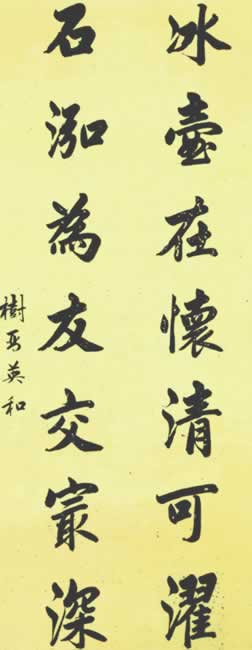 冰壺在懷清可濯
石泓為友交㝡深
樹琴英和